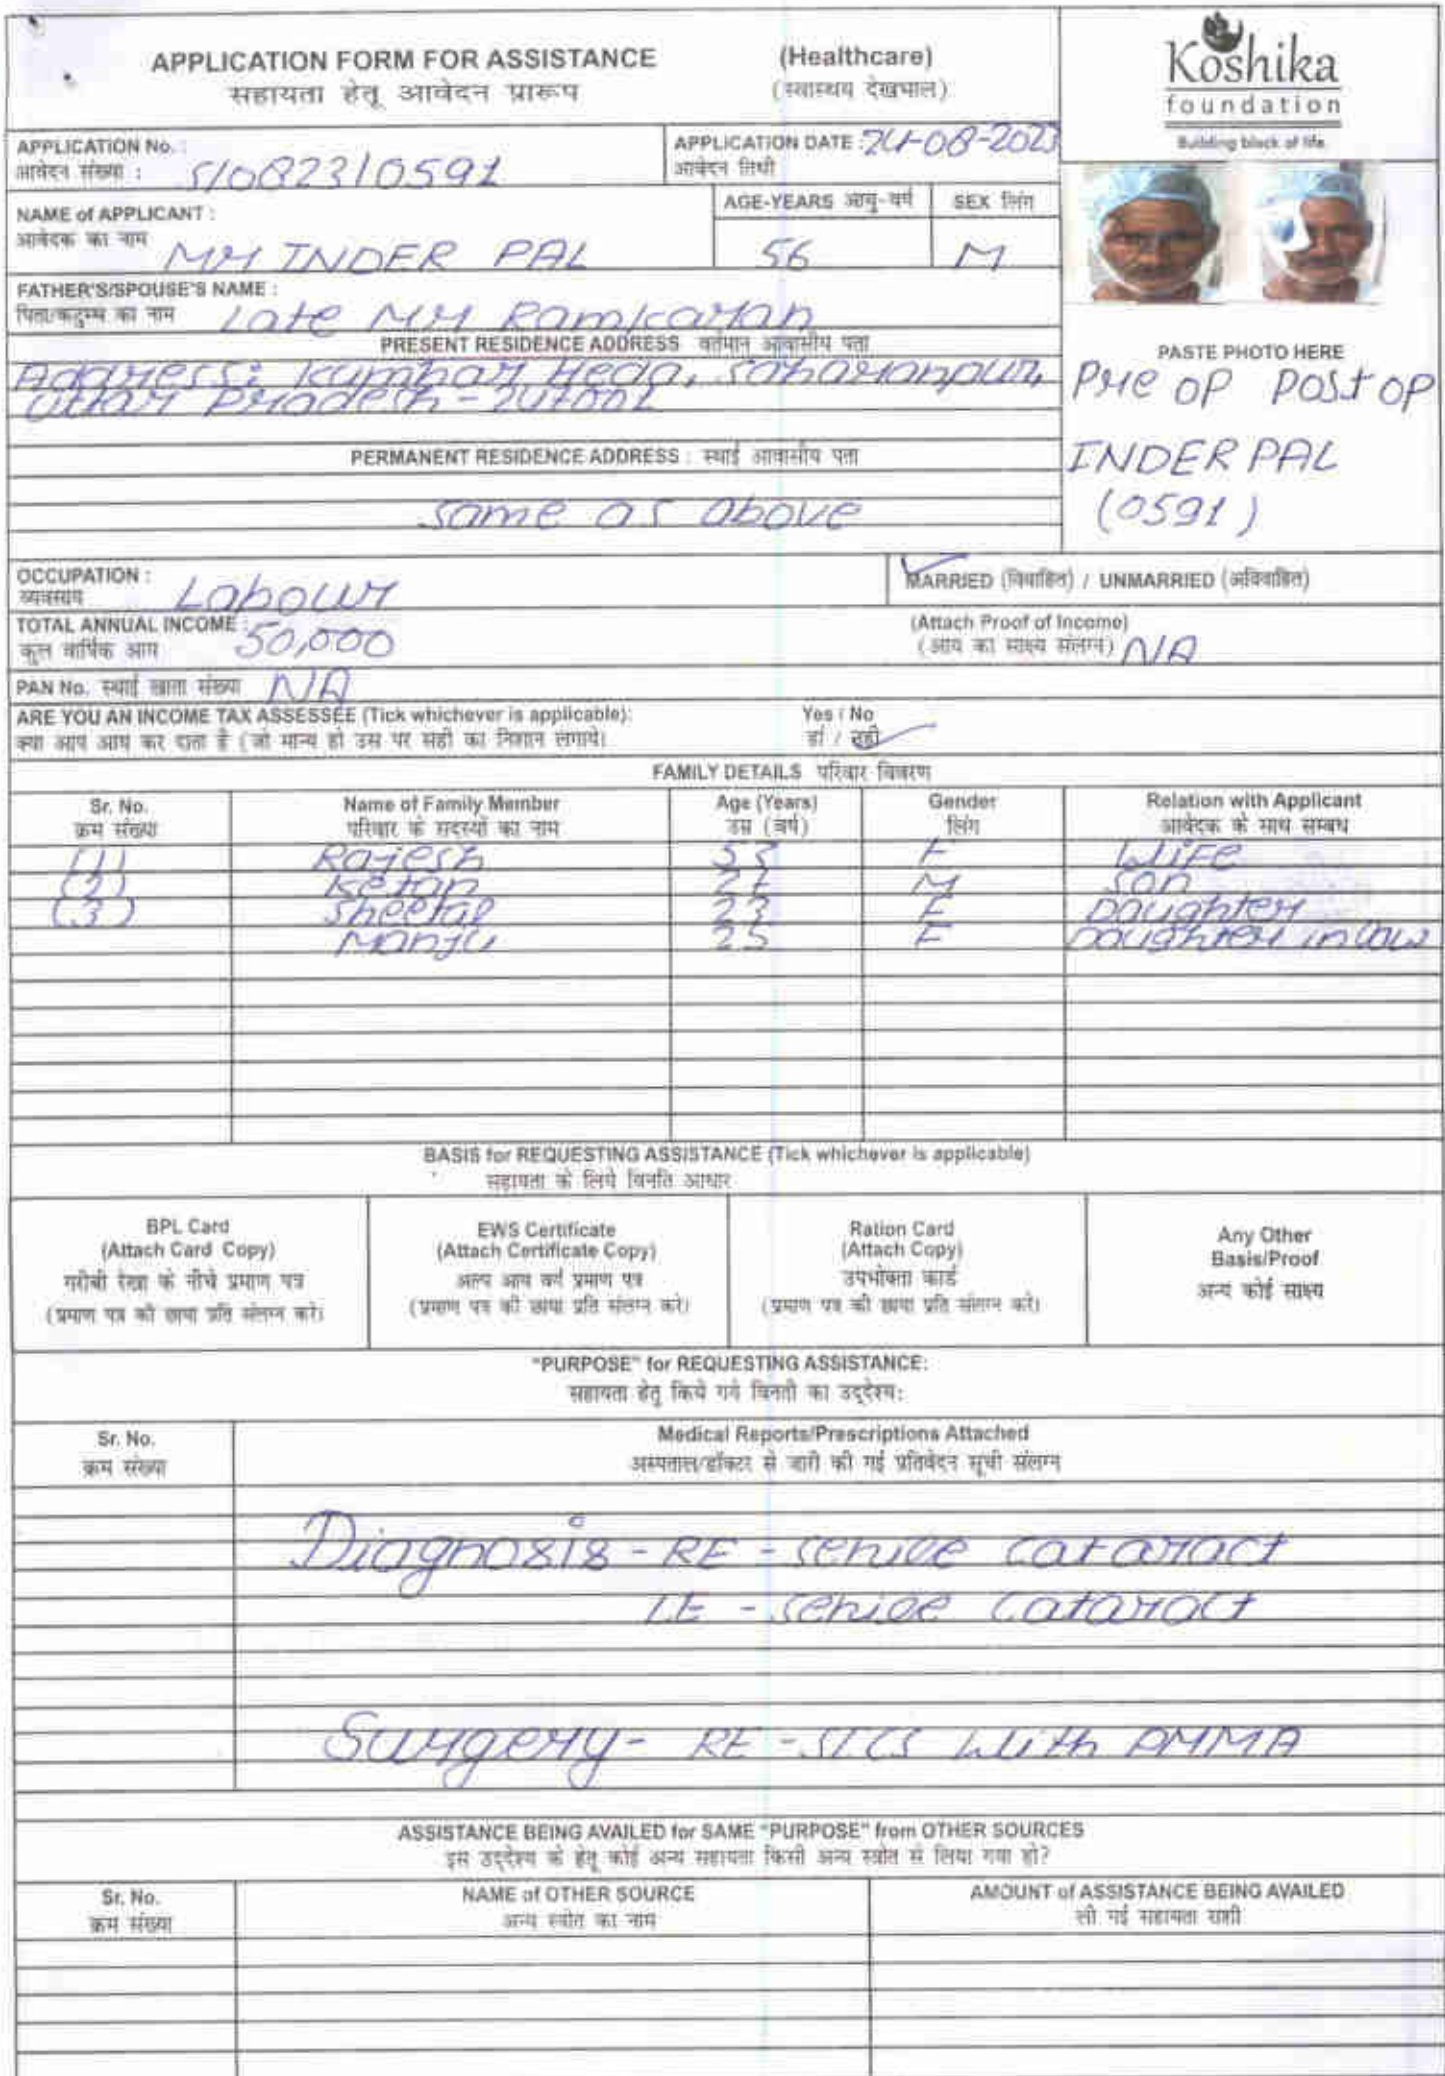 APPLICATION FORM FOR ASSISTANCE (Healthcare)
सहायता हेतू आवेदन प्रारूप (स्वास्थय देखभाल)
Koshika
foundation
Building block of life
APPLICATION No. :
आवेदन संख्या : S/0823/0591
APPLICATION DATE : 24-08-2023
आवेदन तिथी
NAME of APPLICANT :
आवेदक का नाम Mr INDER PAL
AGE-YEARS आयु-वर्ष 56
SEX लिंग M
FATHER'S/SPOUSE'S NAME :
पिता/कटुम्ब का नाम Late Mr Ramkaran
PRESENT RESIDENCE ADDRESS वर्तमान आवासीय पता
Address: Kumhar Heda, Saharanpur,
Uttar Pradesh - 247001
PERMANENT RESIDENCE ADDRESS : स्थाई आवासीय पता
same as above
PASTE PHOTO HERE
Pre OP Post OP
INDER PAL
(0591)
OCCUPATION :
व्यवसाय Labour
MARRIED (विवाहित) / UNMARRIED (अविवाहित)
TOTAL ANNUAL INCOME :
कुल वार्षिक आय 50,000
(Attach Proof of Income)
(आय का साक्ष्य संलग्न) NA
PAN No. स्थाई खाता संख्या NA
ARE YOU AN INCOME TAX ASSESSEE (Tick whichever is applicable): Yes / No
क्या आप आय कर दाता है (जो मान्य हो उस पर सही का निशान लगाये) हां / नही
FAMILY DETAILS परिवार विवरण
Sr. No. Name of Family Member Age (Years) Gender Relation with Applicant
क्रम संख्या परिवार के सदस्यों का नाम उम्र (वर्ष) लिंग आवेदक के साथ सम्बध
(1) Rajesh 55 F Wife
(2) Ketan M Son
(3) Sheetal 23 F Daughter
Manju 25 F Daughter in law
BASIS for REQUESTING ASSISTANCE (Tick whichever is applicable)
सहायता के लिये विनति आधार
BPL Card
(Attach Card Copy)
गरीबी रेखा के नीचे प्रमाण पत्र
(प्रमाण पत्र की छाया प्रति संलग्न करे)
EWS Certificate
(Attach Certificate Copy)
अल्प आय वर्ग प्रमाण पत्र
(प्रमाण पत्र की छाया प्रति संलग्न करे)
Ration Card
(Attach Copy)
उपभोक्ता कार्ड
(प्रमाण पत्र की छाया प्रति संलग्न करे)
Any Other
Basis/Proof
अन्य कोई साक्ष्य
"PURPOSE" for REQUESTING ASSISTANCE:
सहायता हेतु किये गये विनती का उद्देश्य:
Sr. No. Medical Reports/Prescriptions Attached
क्रम संख्या अस्पताल/डॉक्टर से जारी की गई प्रतिवेदन सूची संलग्न
Diagnosis - RE - senile cataract
LE - senile cataract
Surgery - RE - SICS with PMMA
ASSISTANCE BEING AVAILED for SAME "PURPOSE" from OTHER SOURCES
इस उद्देश्य के हेतू कोई अन्य सहायता किसी अन्य स्त्रोत से लिया गया हो?
Sr. No. NAME of OTHER SOURCE AMOUNT of ASSISTANCE BEING AVAILED
क्रम संख्या अन्य स्त्रोत का नाम ली गई सहायता राशी